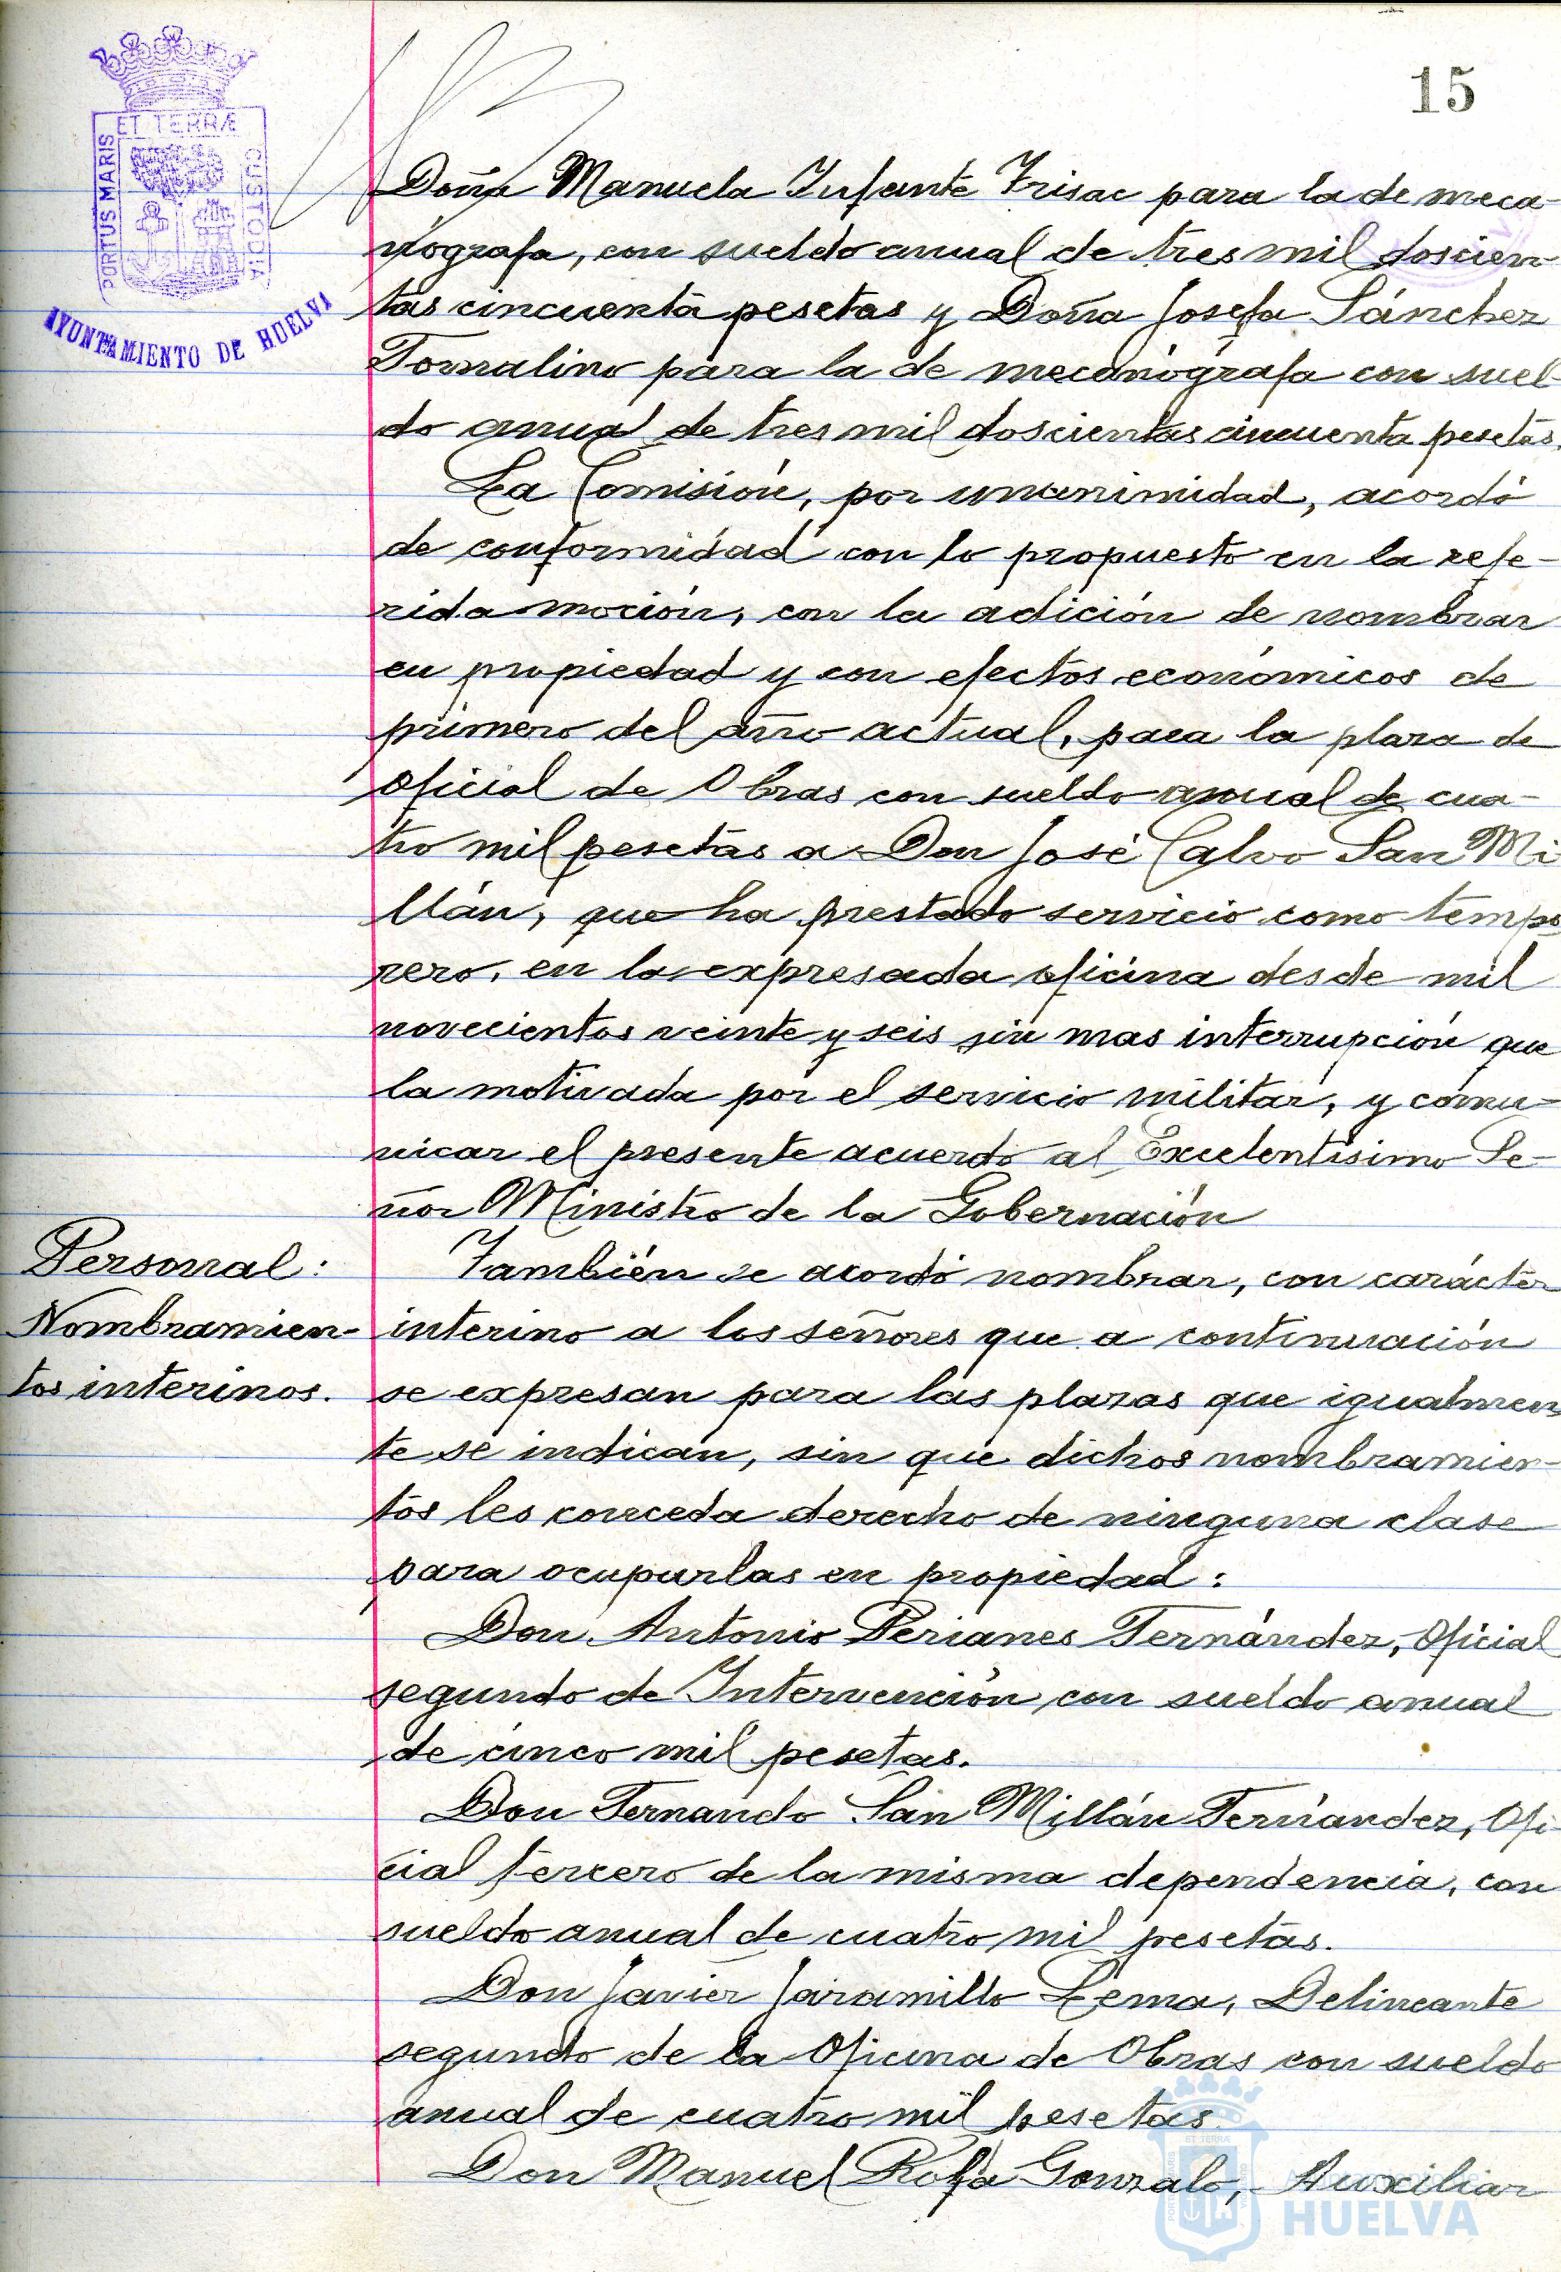 15
ET TERRÆ
PORTUS MARIS
CUSTODIA
AYUNTAMIENTO DE HUELVA
Doña Manuela Infante Frisac para la de meca-
nografa, con sueldo anual de tres mil doscien-
tas cincuenta pesetas y Doña Josefa Sánchez
Tornalino para la de mecanógrafa con suel-
do anual de tres mil doscientas cincuenta pesetas.
La Comisión, por unanimidad, acordó
de conformidad con lo propuesto en la refe-
rida moción, con la adición de nombrar
en propiedad y con efectos económicos de
primero del año actual, para la plaza de
oficial de Obras con sueldo anual de cua-
tro mil pesetas a Don José Calvo San Mi
llán, que ha prestado servicio como tempo
rero, en la expresada oficina desde mil
novecientos veinte y seis sin mas interrupción que
la motivada por el servicio militar, y comu-
nicar el presente acuerdo al Excelentísimo Se-
ñor Ministro de la Gobernación
Personal:
Nombramien-
tos interinos.
También se acordó nombrar, con carácter
interino a los señores que a continuación
se expresan para las plazas que igualmen
te se indican, sin que dichos nombramien-
tos les conceda derecho de ninguna clase
para ocuparlas en propiedad:
Don Antonio Perianes Fernández, Oficial
segundo de Intervención con sueldo anual
de cinco mil pesetas.
Don Fernando San Millán Fernández, Ofi-
cial tercero de la misma dependencia, con
sueldo anual de cuatro mil pesetas.
Don Javier Jaramillo Lema, Delineante
segundo de la Oficina de Obras con sueldo
anual de cuatro mil pesetas
Don Manuel Rofa Gonzalo, Auxiliar
HUELVA